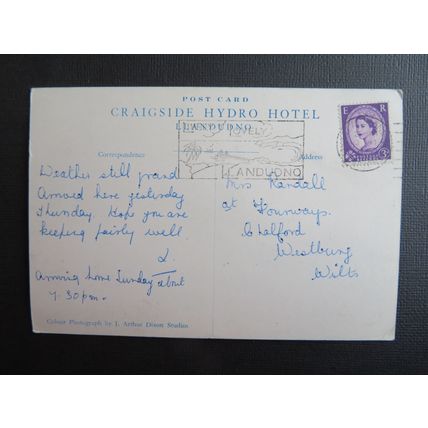 POST CARD
CRAIGSIDE HYDRO HOTEL
LLANDUDNO
LOVELY
LLANDUDNO
E R
3D
Correspondence
Address
Weather still grand
Arrived here yesterday
Thursday. Hope you are
keeping fairly well
L.
Arriving home Sunday about
7.30pm.
Mrs Randall
at Fourways.
Chalford
Westbury
Wilts
Colour Photograph by J. Arthur Dixon Studios